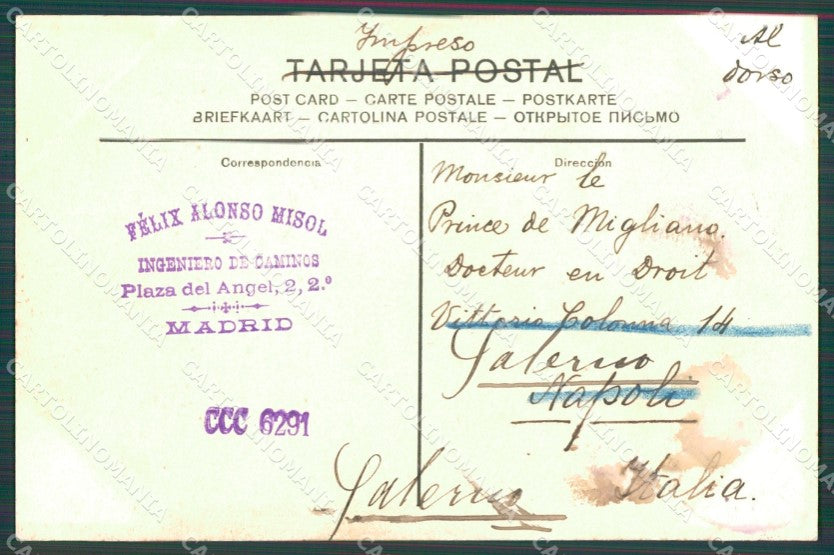 Impreso
Al
dorso
TARJETA POSTAL
POST CARD — CARTE POSTALE — POSTKARTE
BRIEFKAART — CARTOLINA POSTALE — ОТКРЫТОЕ ПИСЬМО
Correspondencia
Dirección
FÉLIX ALONSO MISOL
INGENIERO DE CAMINOS
Plaza del Angel, 2, 2.º
MADRID
CCC 6291
Monsieur le
Prince de Migliano.
Docteur en Droit
Vittoria Colonna 14
Salerno
Napoli
Salerno Italia.
CARTOLINOMANIA